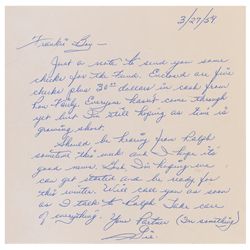 3/27/59
Frankie Boy -
Just a note to send you some
checks for the Fund. Enclosed are five
checks plus 30.00 dollars in cash from
Everyone hasn't come through
yet but I'm still hoping as time is
growing short.
Should be hearing from Ralph
sometime this week and I hope it's
good news. Gosh, I'm hoping we
can get started and be ready for
this winter. Will call you as soon
as I talk to Ralph. Take care
of everything. Your Partner (I'm something)